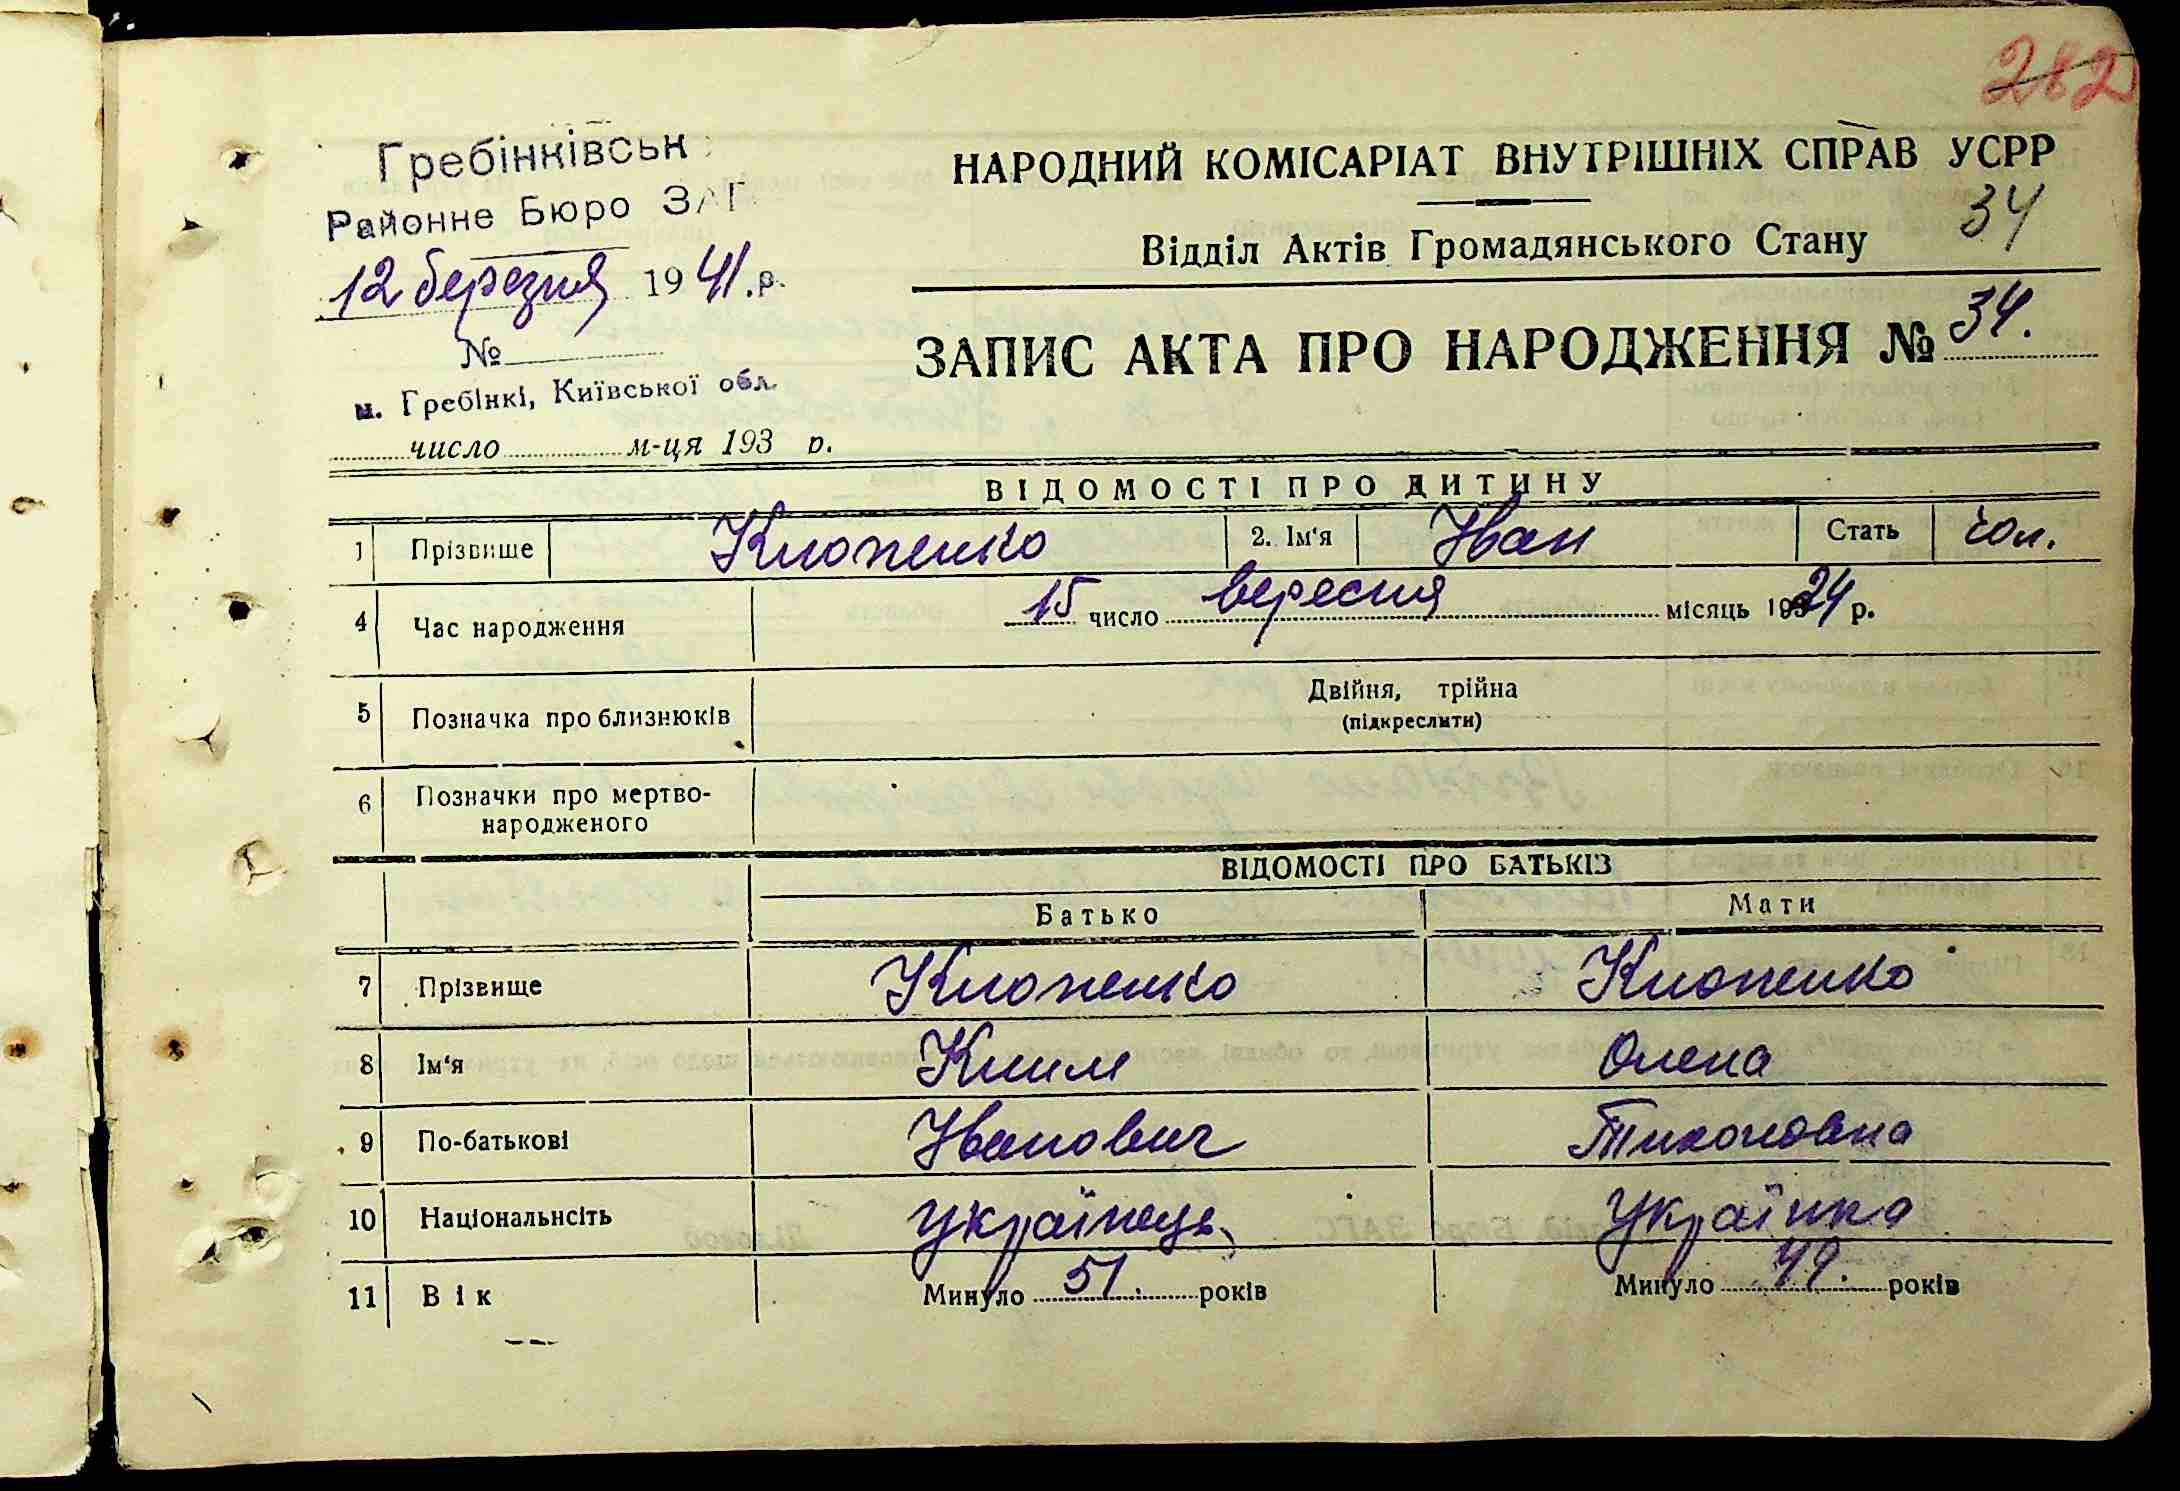 282
Гребінківськ
Районне Бюро ЗАГ
12 березня 1941 р.
№
м. Гребінкі, Київської обл.
число м-ця 193 р.
НАРОДНИЙ КОМІСАРІАТ ВНУТРІШНІХ СПРАВ УСРР
34
Відділ Актів Громадянського Стану
ЗАПИС АКТА ПРО НАРОДЖЕННЯ № 34.
ВІДОМОСТІ ПРО ДИТИНУ
1 Прізвище Клопенко 2. Ім'я Іван Стать чол.
4 Час народження 15 число вересня місяць 1924 р.
5 Позначка про близнюків Двійня, трійна
(підкреслити)
6 Позначки про мертво-
народженого
ВІДОМОСТІ ПРО БАТЬКІВ
Батько Мати
7 Прізвище Клопенко Клопенко
8 Ім'я Клим Олена
9 По-батькові Іванович Тихоновна
10 Національнсіть українець Українка
11 Вік Минуло 51. років Минуло 49. років